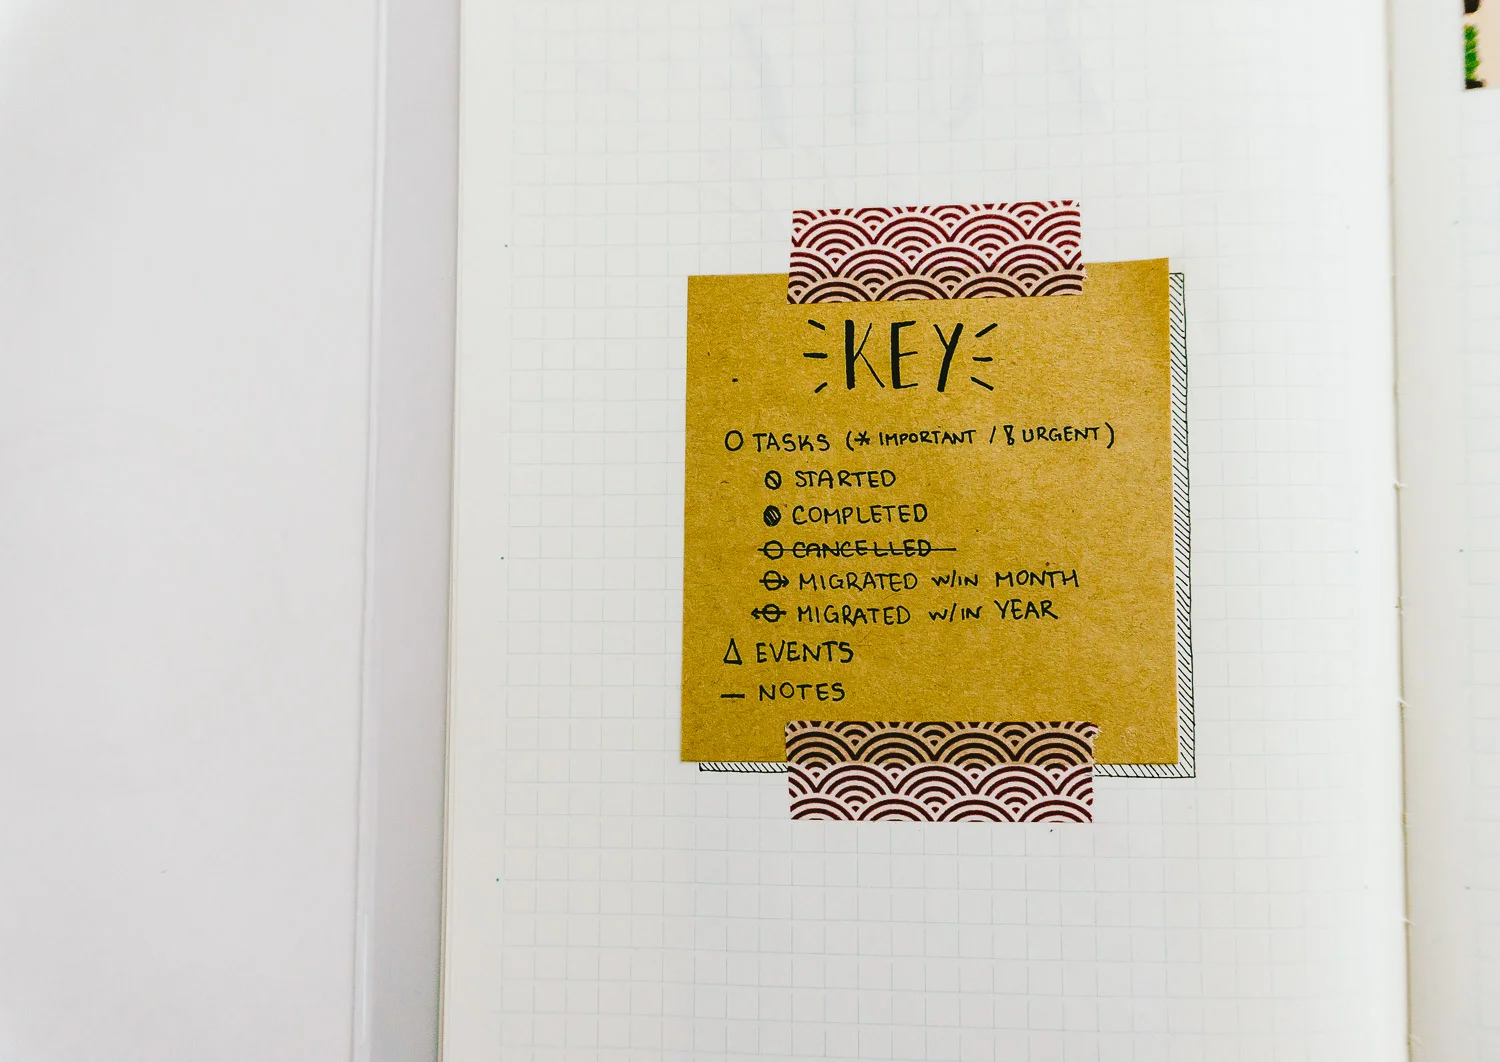 KEY
O TASKS (* IMPORTANT / ! URGENT)
STARTED
COMPLETED
CANCELLED
MIGRATED W/IN MONTH
MIGRATED W/IN YEAR
Δ EVENTS
— NOTES